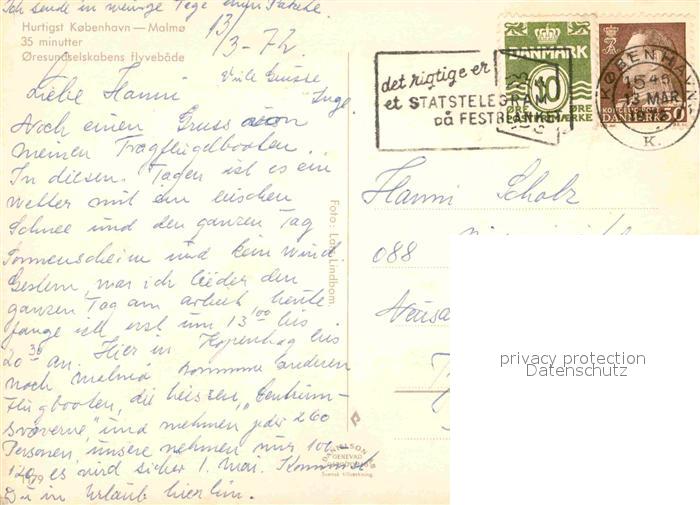 Ich sende in einige Tage einen Pakche
Hurtigst København — Malmø
35 minutter
Øresundselskabens flyvebåde
13/3-72
Viele Grüsse
Inge
Liebe Hanni
Noch einen Gruss von
meinen Tragflügelbooten.
In diesen Tagen ist es ein
Wetter mit ein bischen
Schnee und den ganzen Tag
Sonnenschein und kein Wind
Gestern war ich leider den
ganzen Tag am arbeit heute
fange ich erst um 13 00 bis
20 30 an. Hier in Kopenhag bis
nach Malmö kommen anderen
Flugbooten, die heissen "Centrum-
Svøverne" und nehmen jeder 260
Personen, unsere nehmen nur 100
120 es wird sicher 1. Mai. Kommst
Du in Urlaub hierhin.
Foto: Lars Lindbom.
DANMARK
10
ØRE ØRE
DANMARK 50
KØBENHAVN
15 MAR
K.
det rigtige er
et STATSTELEGRAM
på FESTBLANKET
Hanni Scholz
088
privacy protection
Datenschutz
GENEVAD
Svensk tillverkning